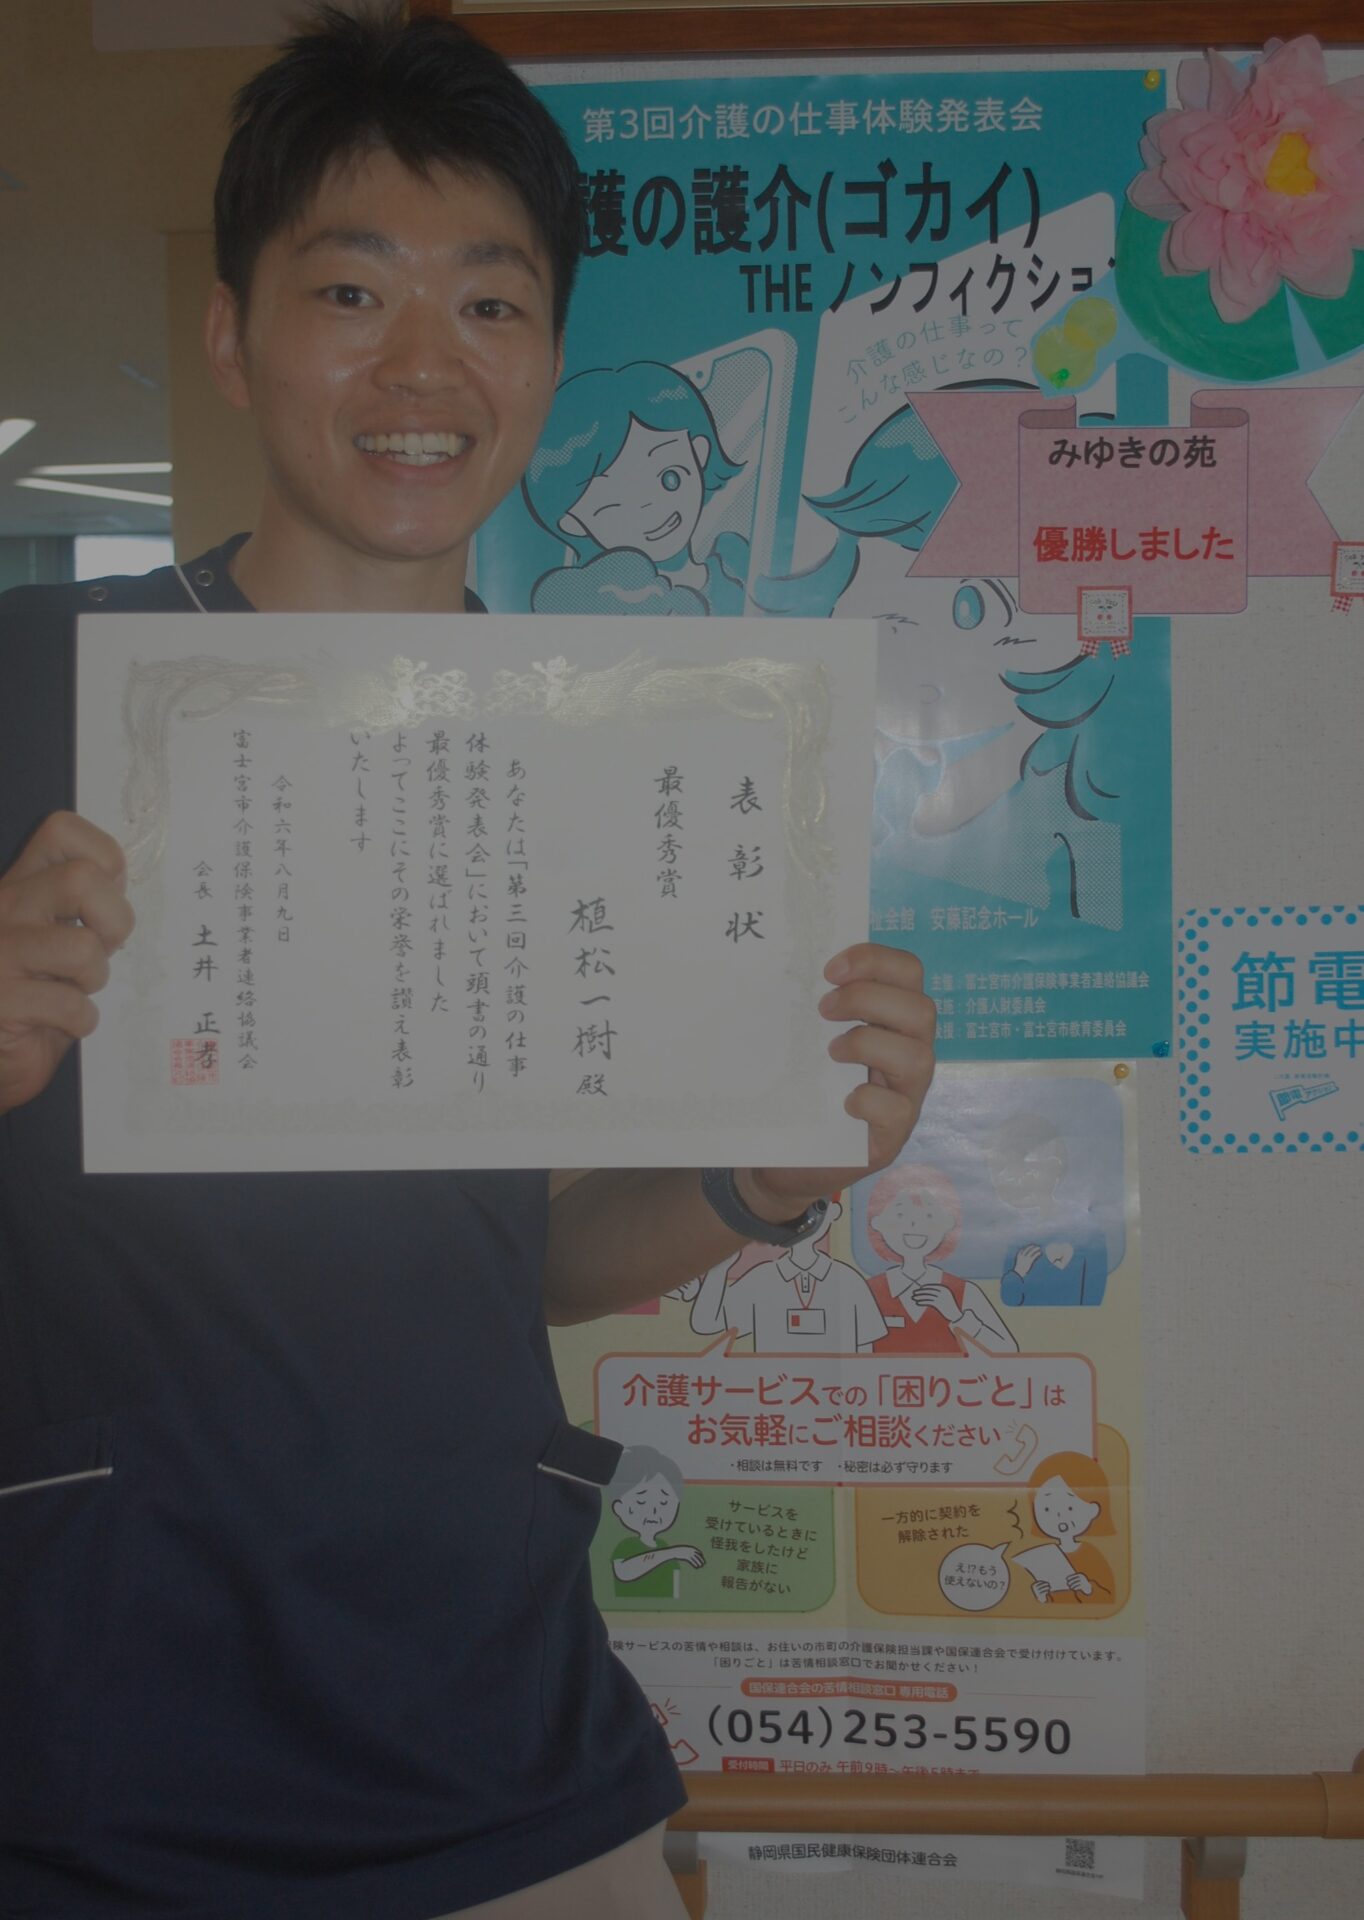 第3回介護の仕事体験発表会
護の護介(ゴカイ)
THE ノンフィクショ
介護の仕事って
こんな感じなの？
みゆきの苑
優勝しました
表彰状
最優秀賞
植松一樹殿
あなたは「第三回介護の仕事
体験発表会」において頭書の通り
最優秀賞に選ばれました
よってここにその栄誉を讃え表彰
いたします
令和六年八月九日
富士宮市介護保険事業者連絡協議会
会長 土井 正孝
祉会館 安藤記念ホール
主催：富士宮市介護保険事業者連絡協議会
実施：介護人財委員会
後援：富士宮市・富士宮市教育委員会
節電
実施中
節電アクション
介護サービスでの「困りごと」は
お気軽にご相談ください
・相談は無料です ・秘密は必ず守ります
サービスを
受けているときに
怪我をしたけど
家族に
報告がない
一方的に契約を
解除された
え!?もう
使えないの？
険サービスの苦情や相談は、お住いの市町の介護保険担当課や国保連合会で受け付けています。
「困りごと」は苦情相談窓口でお聞かせください！
国保連合会の苦情相談窓口 専用電話
(054)253-5590
受付時間 平日のみ 午前9時〜午後5時まで
静岡県国民健康保険団体連合会